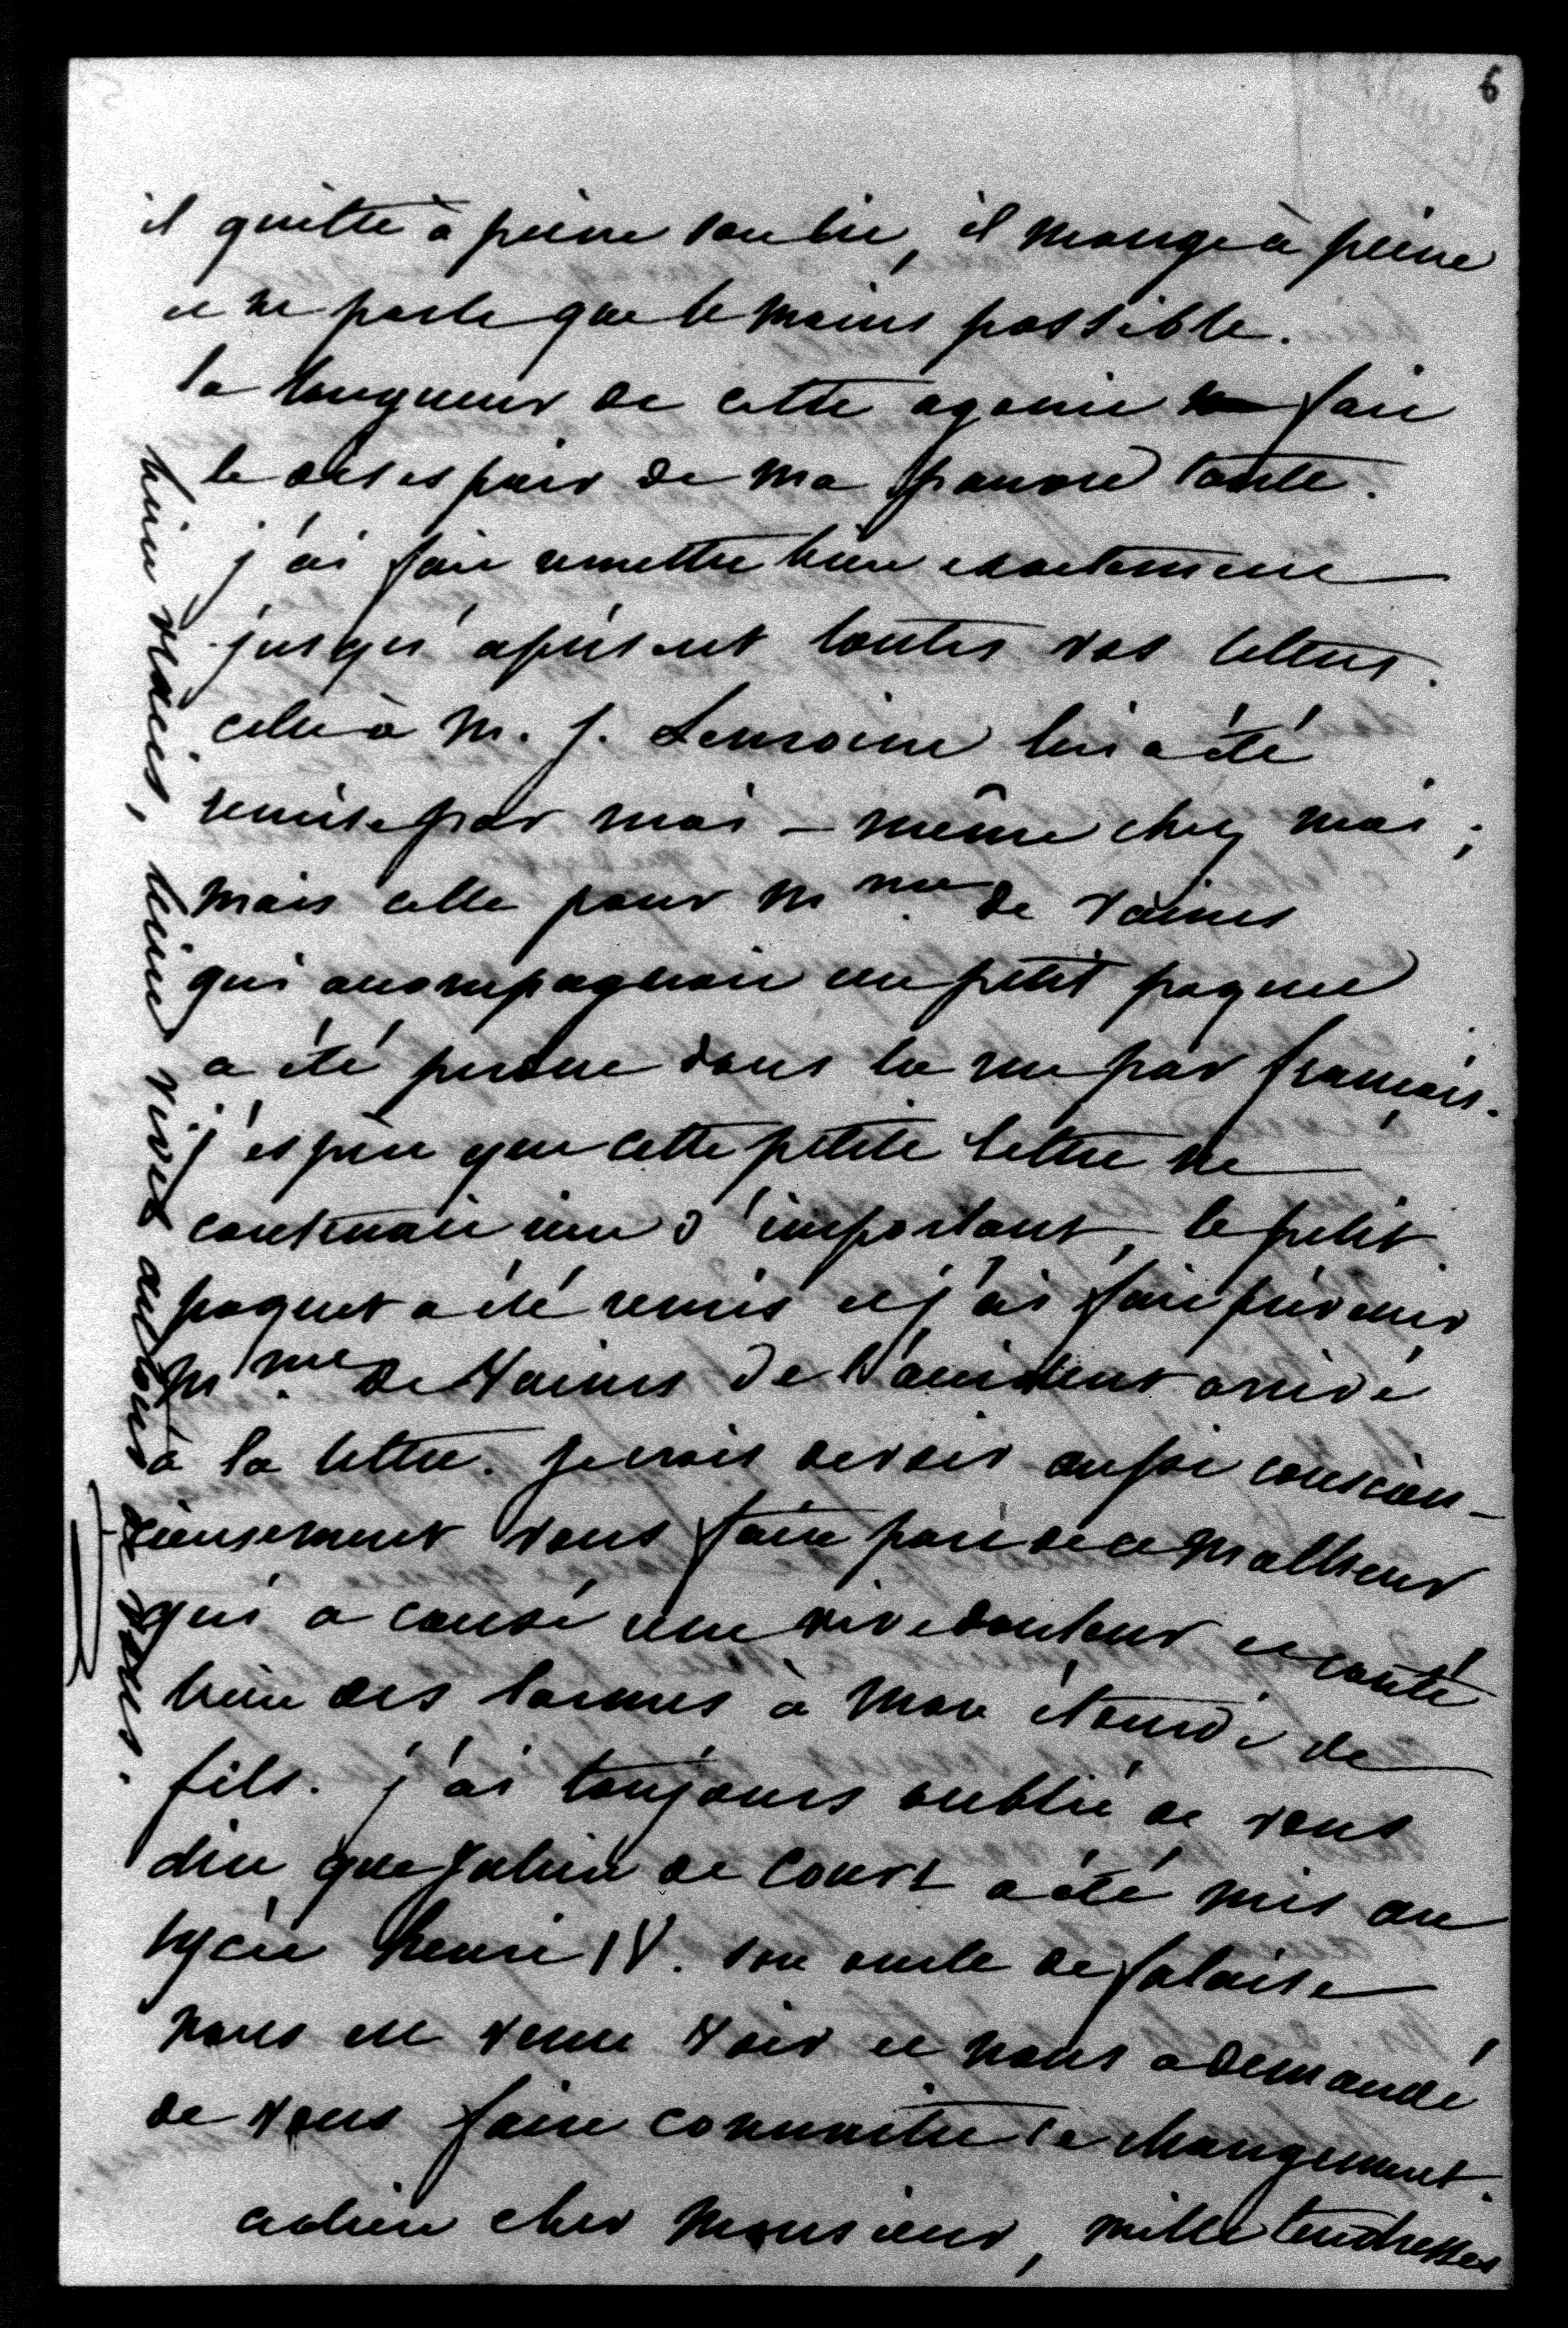 6
il quitte à peine son lit, il mange à peine
et ne parle que le moins possible.
la longueur de cette agonie fait
le désespoir de ma pauvre tante.
j'ai fait remettre bien exactement
jusqu'à présent toutes vos lettres.
celle à M. J. Lemoine lui a été
remise par moi-même chez moi ;
mais celle pour Mme de Vaines
qui accompagnait un petit paquet
a été perdue dans la rue par françois.
j'espère que cette petite lettre ne
contenait rien d'important, le petit
paquet a été remis et j'ai fait prévenir
Mme de Vaines de l'accident arrivé
à la lettre. je crois devoir aussi conscien-
cieusement vous faire part de ce malheur
qui a causé une vive douleur et couté
bien des larmes à mon étourdi de
fils. j'ai toujours oublié de vous
dire que Julien de Court a été mis au
lycée henri IV. son oncle de falaise
nous est venu voir et nous a demandé
de vous faire connaitre ce changement.
adieu cher Monsieur, mille tendresses
bien vraies, bien vives autour de vous.